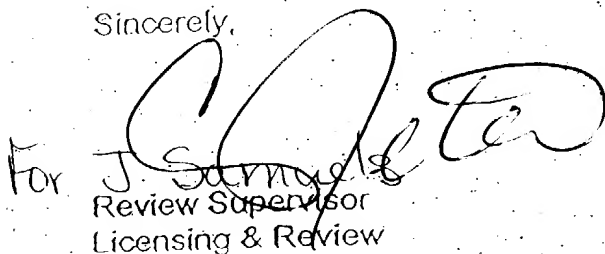 Sincerely,
For J. Samuels
Review Supervisor
Licensing & Review